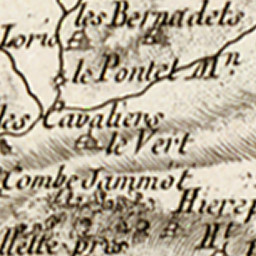 les Bernadets
Joris
le Pontet Mⁿ
les Cavaliers
le Vert
Combe Jammöt
Hierep
llette prus
Mᵗ